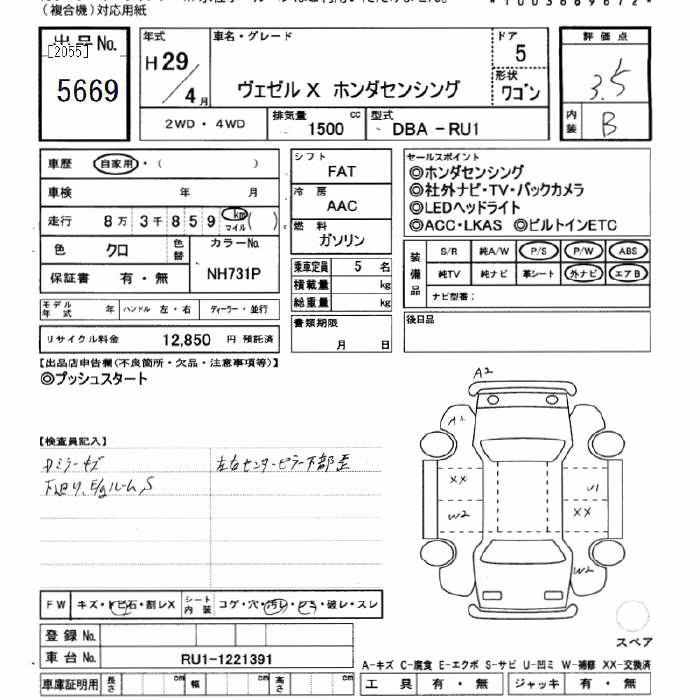 (複合機)対応用紙
*1003669672*
出品No.
[2055]
5669
年式
H29/4月
車名・グレード
ヴェゼル X ホンダセンシング
ドア
5
形状
ワゴン
2WD・4WD
排気量
1500 cc
型式
DBA-RU1
評価点
3.5
内装
B
車歴 自家用・( )
車検 年 月
走行 8万3千859 km マイル ( )
色 クロ 色替 カラーNo. NH731P
保証書 有・無
モデル年式 年 ハンドル 左・右 ディーラー・並行
リサイクル料金 12,850 円 預託済
シフト
FAT
冷房
AAC
燃料
ガソリン
乗車定員 5 名
積載量 kg
総重量 kg
書類期限
月 日
セールスポイント
◎ホンダセンシング
◎社外ナビ・TV・バックカメラ
◎LEDヘッドライト
◎ACC・LKAS ◎ビルトインETC
装備品
S/R 純A/W P/S P/W ABS
純TV 純ナビ 革シート 外ナビ エアB
ナビ型番:
後日品
【出品店申告欄(不良箇所・欠品・注意事項等)】
◎プッシュスタート
【検査員記入】
Dミラーキズ
下廻り、E/gルームS
左右センターピラー下部歪
A2
A1
XX
W2
U1
XX
W2
FW キズ・トビ石・割レX シート内装 コゲ・穴・汚レ・シミ・破レ・スレ
登録No.
車台No. RU1-1221391
車庫証明用 長さ cm 幅 cm 高さ cm
スペア
A-キズ C-腐食 E-エクボ S-サビ U-凹ミ W-補修 XX-交換済
工具 有・無 ジャッキ 有・無